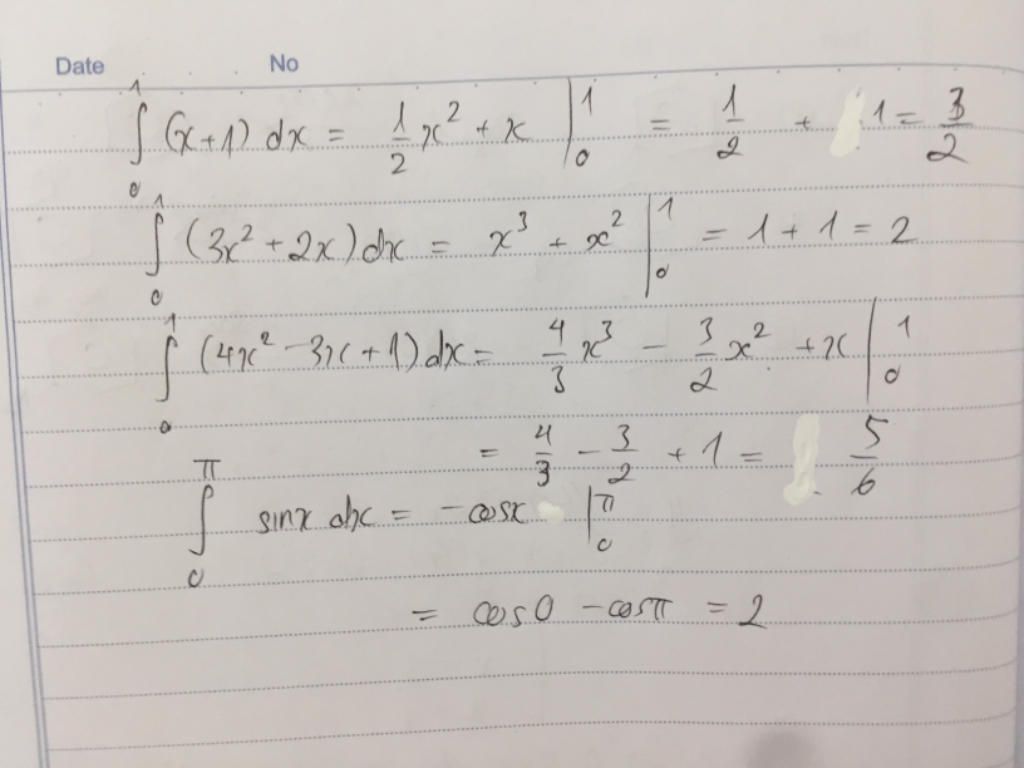 Date No
∫₀¹ (x+1) dx = 1/2 x² + x |₀¹ = 1/2 + 1 = 3/2
∫₀¹ (3x² + 2x) dx = x³ + x² |₀¹ = 1 + 1 = 2
∫₀¹ (4x² - 3x + 1) dx = 4/3 x³ - 3/2 x² + x |₀¹
= 4/3 - 3/2 + 1 = 5/6
∫₀^π sinx dx = -cosx |₀^π
= cos0 - cosπ = 2